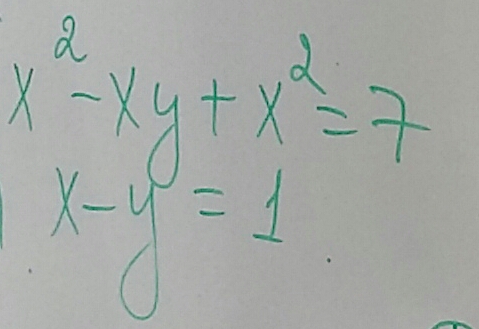 x² - xy + x² = 7
x - y = 1